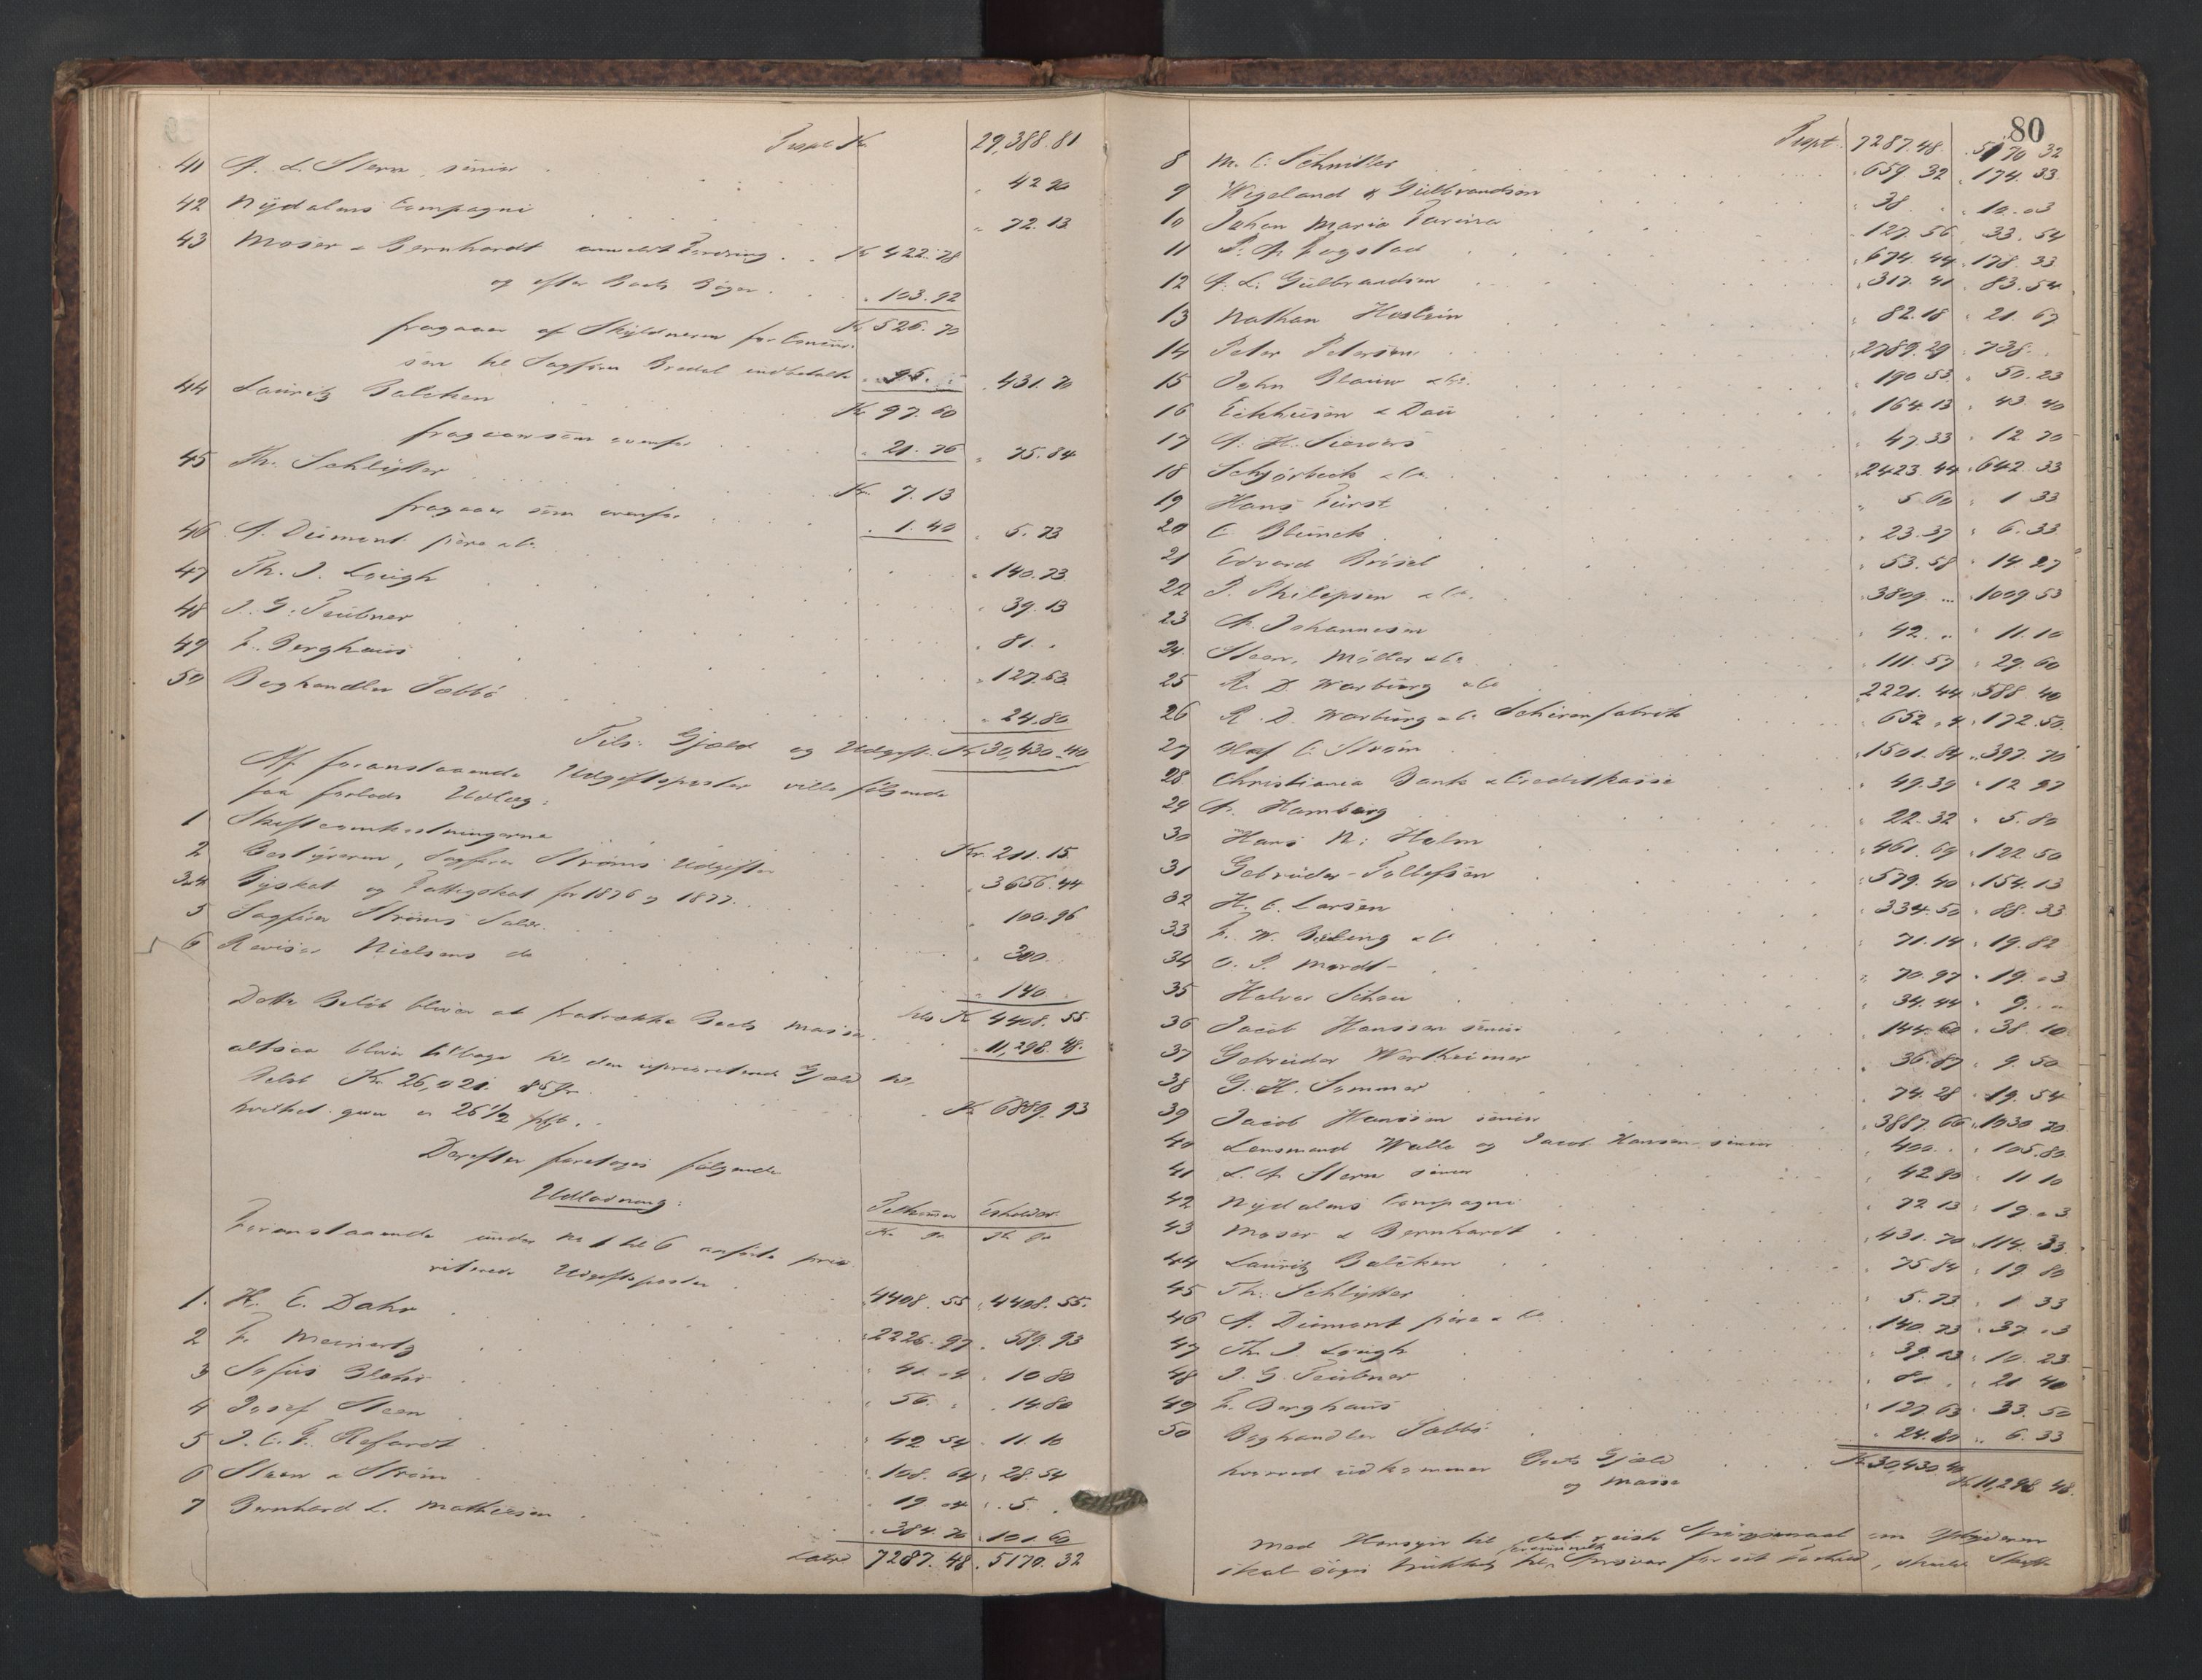 Trspt Kr. 29,388.81
41 A. L. Stern, senior " 42 90
42 Nydalens Compagni " 72.13
43 Moser & Bernhardt anmeldt Fordring Kr 422.78
og efter Boets Bøger " 103.92
Kr 526.70
fragaaer af Skyldneren før Concur-
sen til Sagfører Bredal indbetalte " 95. " " 431.70
44 Lauritz Balchen Kr 97.60
fragaaer som ovenfor " 21.76 " 75.84
45 Th. Schlytter Kr. 7.13
fragaaer som ovenfor " 1.40 " 5.73
46 A. Diemont père & Co. " 140.73
47 Th. J. Leigh " 39.13
48 J. G. Teubner " 81. "
49 F. Berghaus " 127.63
50 Boghandler Sæbbø " 24.80
Tils. Gjæld og Udgift. Kr 30,430.40
Af foranstaaende Udgiftsposter ville følgende
faa forlods Udlæg:
1 Skifteomkostningerne Kr. 211.15
2 Bestyreren, Sagfører Strøms Udgifter " 3656.44
3&4 Byskat og Fattigskat for 1876 og 1877. " 100.96
5 Sagfører Strøms Salær " 300.
6 Revisor Nielsens do " 140
tils Kr 4408.55
Dette Beløb bliver at fratrække Boets Masse " 11,298.48.
altsaa bliver tilbage til den uprioriterede Gjæld til
Beløb Kr. 26,021.85 Gr. Kr 6889.93
hvilket giver ca 26 1/2 pCt.
Derefter foretages følgende
Udlodning:
Tilkommer Erholder
Kr Gr Kr Gr
Foranstaaende under No 1 til 6 anførte prio-
riterede Udgiftsposter " 4408.55 " 4408.55.
1. H. C. Dahr " 2226.97 " 589.93
2 F. Meinertz " 41.04 " 10 80
3 Sofus Blehr " 56. " " 14 80
4 Josef Steen " 42 54 " 11.10
5 J. C. F. Refardt " 108.64 " 28.54
6 Steen & Strøm " 19 04 " 5. "
7 Bernhard L. Mathiesen " 384.70 " 101 60
Latus 7287.48 " 5170.32
80
Trspt. 7287.48 " 5170 32
8 M. C. Schmidler " 659.32 " 174.33
9 Wegeland & Gulbrandsen " 38 " " 10.03
10 Johan Maria Farina " 127.56 " 33.54
11 P. A. Fogstad " 674.44 " 178.33
12 A. L. Gulbrandsen " 317.41 " 83.54
13 Nathan Hoslein " 82.18 " 21.67
14 Peter Petersen " 2789.29 " 738. "
15 John Blauw & Co. " 190 53 " 50.23
16 Eckhusen & Dau " 164.13 " 43.40
17 A. H. Sievers " 47.33 " 12 70
18 Schjørbeck & Co " 2423.44 " 642.33
19 Hans Fürst " 5.60 " 1 33
20 C. Blunck " 23.37 " 6.33
21 Edvard Brösel " 53.58 " 14.27
22 P. Philipsen & Co. " 3809. " " 1009.53
23 A. Johannesen " 42. " " 11.10
24. Steen, Møller & Co " 111.57 " 29.60
25 R. D. Warburg & Co " 2221.44 " 588.40
26 R. D. Warburg & Co. Schirmfabrik " 652.04 " 172.50
27 Olaf C. Strøm " 1501.84 " 397.70
28 Christiania Bank & Creditkasse " 49.39 " 12 97
29 A. Hamborg " 22.32 " 5.80
30 Hans N. Holm " 461.69 " 122.50
31 Gebrüder Tollefsen " 579.40 " 154.13
32 H. C. Larsen " 334.50 " 88.33
33 F. W. Büking & Co " 71.14 " 19.82
34 O. P. Mørdt " 70.97 " 19.03
35 Halvor Schou " 34.44 " 9. "
36 Jacob Hanssen senior " 144.60 " 38.10
37 Gebrüder Wertheimer " 36.87 " 9.50
38 G. H. Sommer " 74.28 " 19.54
39 Jacob Hanssen senior " 3887.66 " 1030 70
40 Lensmand Walle og Jacob Hanssen senior " 400. " " 105.80
41 L. A. Stern senior " 42 90 " 11 10
42 Nydalens Compagni " 72 13 " 19.03
43 Moser & Bernhardt " 431.70 " 114.33
44 Lauritz Balchen " 75 84 " 19 80
45 Th. Schlytter " 5.73 " 1 33
46 A. Diemont père & Co " 140.73 " 37.03
47 Th. J. Leigh " 39.13 " 10.23
48 J. G. Teubner " 81 " " 21 40
49 F. Berghaus " 127.63 " 33.50
50 Boghandler Sæbbø " 24.80 " 6.33
hvorved udkommer Boets Gjæld Kr 30,430 40
og Masse Kr 11,298 48.
Med Hensyn til det reiste Spørgsmaal om Skyldneren
skal søges trukket til criminelt Ansvar for sit Forhold, skulde Skifte-